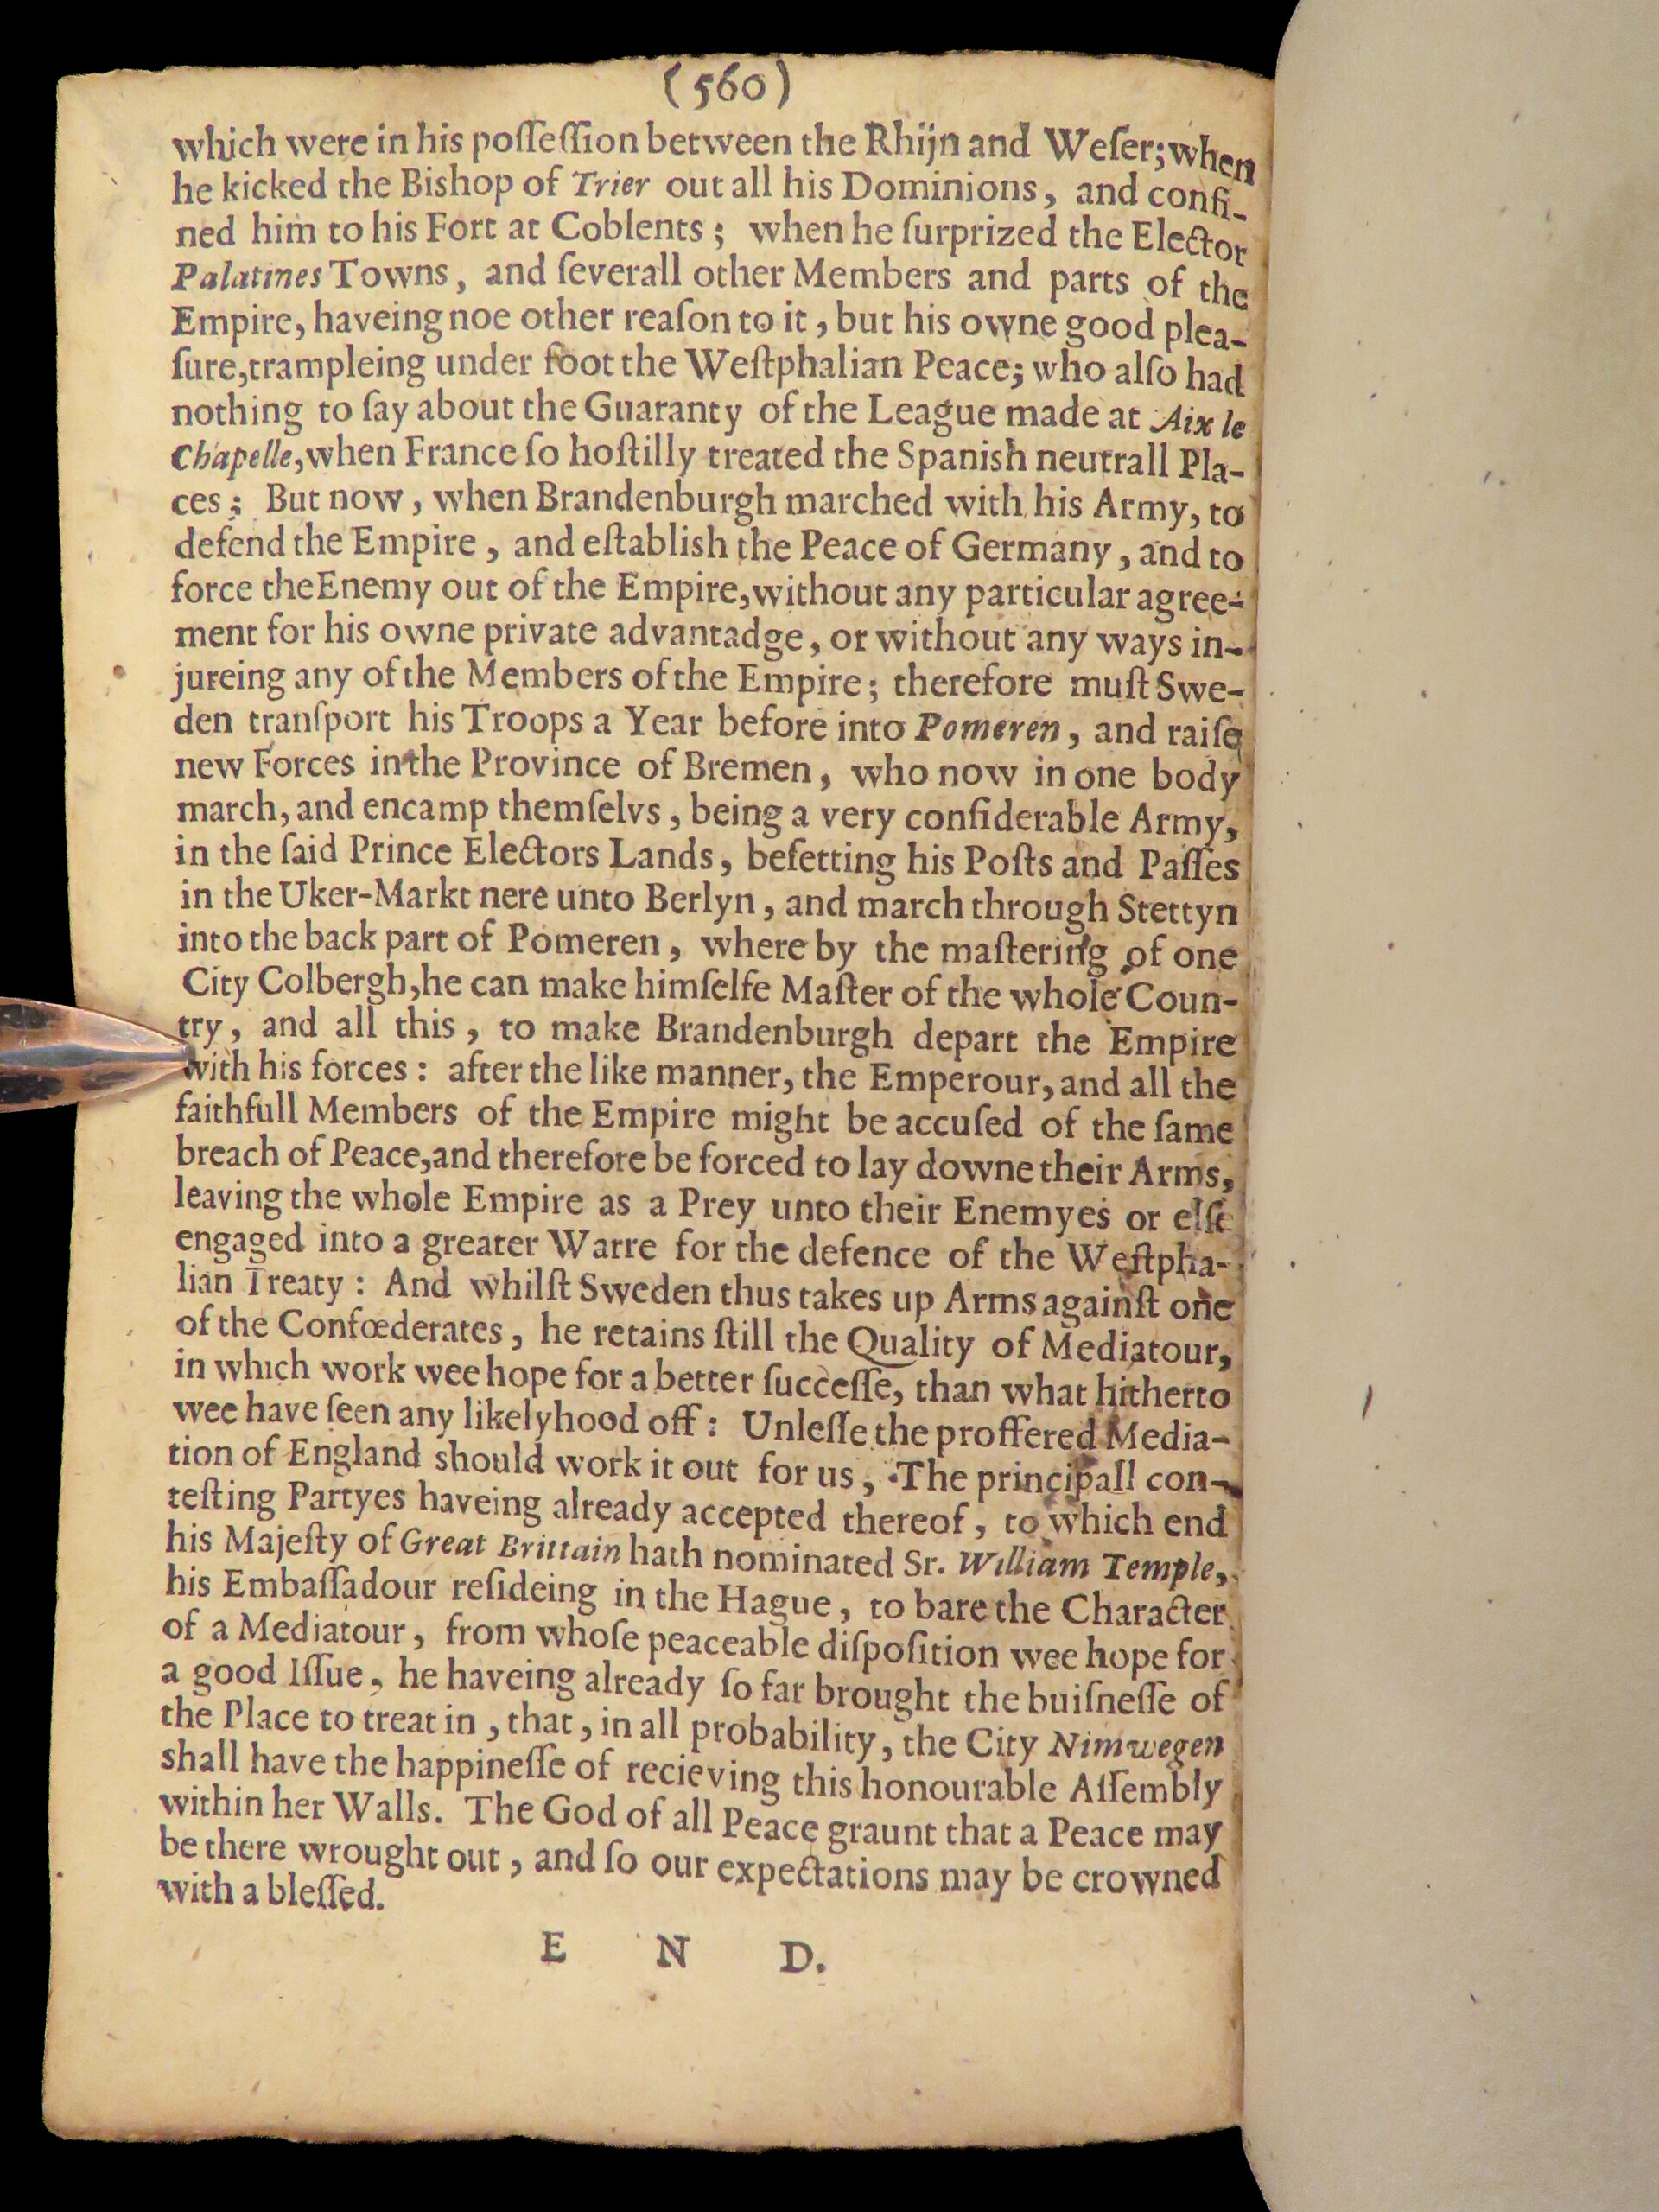 (560)
which were in his poſſeſſion between the Rhijn and Weſer; when
he kicked the Bishop of Trier out all his Dominions, and confi-
ned him to his Fort at Coblents; when he ſurprized the Elector
Palatines Towns, and ſeverall other Members and parts of the
Empire, haveing noe other reaſon to it, but his owne good plea-
ſure, trampleing under foot the Weſtphalian Peace; who alſo had
nothing to ſay about the Guaranty of the League made at Aix le
Chapelle, when France ſo hoſtilly treated the Spanish neutrall Pla-
ces; But now, when Brandenburgh marched with his Army, to
defend the Empire, and eſtablish the Peace of Germany, and to
force the Enemy out of the Empire, without any particular agree-
ment for his owne private advantadge, or without any ways in-
jureing any of the Members of the Empire; therefore muſt Swe-
den tranſport his Troops a Year before into Pomeren, and raiſe
new Forces in the Province of Bremen, who now in one body
march, and encamp themſelvs, being a very conſiderable Army,
in the ſaid Prince Electors Lands, beſetting his Poſts and Paſſes
in the Uker-Markt nere unto Berlyn, and march through Stettyn
into the back part of Pomeren, where by the maſtering of one
City Colbergh, he can make himſelfe Maſter of the whole Coun-
try, and all this, to make Brandenburgh depart the Empire
with his forces: after the like manner, the Emperour, and all the
faithfull Members of the Empire might be accuſed of the ſame
breach of Peace, and therefore be forced to lay downe their Arms,
leaving the whole Empire as a Prey unto their Enemyes or elſe
engaged into a greater Warre for the defence of the Weſtpha-
lian Treaty: And whilſt Sweden thus takes up Arms againſt one
of the Confœderates, he retains ſtill the Quality of Mediatour,
in which work wee hope for a better ſucceſſe, than what hitherto
wee have ſeen any likelyhood off: Unleſſe the proffered Media-
tion of England should work it out for us, The principall con-
teſting Partyes haveing already accepted thereof, to which end
his Majeſty of Great Brittain hath nominated Sr. William Temple,
his Embaſſadour reſideing in the Hague, to bare the Character
of a Mediatour, from whoſe peaceable diſpoſition wee hope for
a good Iſſue, he haveing already ſo far brought the buiſneſſe of
the Place to treat in, that, in all probability, the City Nimwegen
shall have the happineſſe of recieving this honourable Aſſembly
within her Walls. The God of all Peace graunt that a Peace may
be there wrought out, and ſo our expectations may be crowned
with a bleſſed.
E N D.